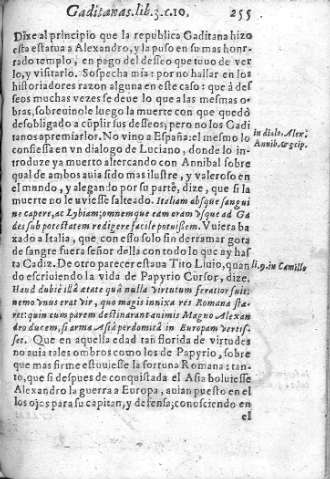 Gaditanas.lib.3.c.10. 255
Dixe al principio que la republica Gaditana hizo
esta estatua a Alexandro, y la puso en su mas honr-
rado templo, en pago del desseo que tuuo de ver
lo, y visitarlo. Sospecha mia: por no hallar en los
historiadores razon alguna en este caso: que à des
seos muchas vezes se deue lo que a las mesmas o-
bras, sobreuinole luego la muerte con que quedò
desobligado a cũplir sus desseos, pero no los Gadi
tanos a premiarlo. No vino a España: el mesmo lo
confiessa en vn dialogo de Luciano, donde lo in-
troduze ya muerto altercando con Annibal sobre
qual de ambos auia sido mas ilustre, y valeroso en
el mundo, y alegando por su parte, dize, que si la
muerte no le uviesse salteado. Italiam absque sangui
ne capere, ac Lybiam; omnemque eam oram vsque ad Ga
des sub potestatem redigere facile potuissem. Vuiera ba-
xado a Italia, que con esto solo sin derramar gota
de sangre fuera señor della con todo lo que ay has
ta Cadiz. De otro parecer estaua Tito Liuio, quan
do escriuiendo la vida de Papyrio Cursor, dize.
Haud dubiè illa ætate quâ nulla virtutum feratior fuit:
nemo vnus erat vir, quo magis innixa res Romana sta-
ret: quin cum parem destinarant animis Magno Alexan
dro ducem, si arma Asiâ perdomitâ in Europam vertis-
set. Que en aquella edad tan florida de virtudes
no auia tales ombros como los de Papyrio, sobre
que mas firme estuuiesse la fortuna Romana: tan-
to, que si despues de conquistada el Asia boluiesse
Alexandro la guerra a Europa, auian puesto en el
los ojos para su capitan, y defensa; conosciendo en
el
in dialo. Alex.
Annib. & scip.
li. 9. in Camillo